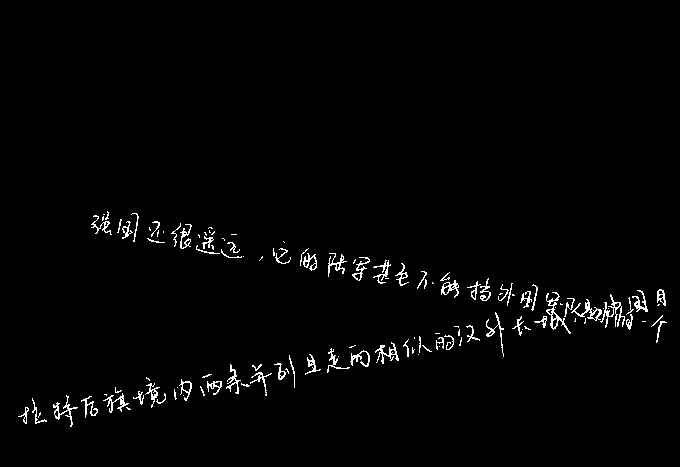 强国还很遥远，它的陆军甚至不能挡外国军队
拉特后旗境内两条并列且走向相似的汉外长城